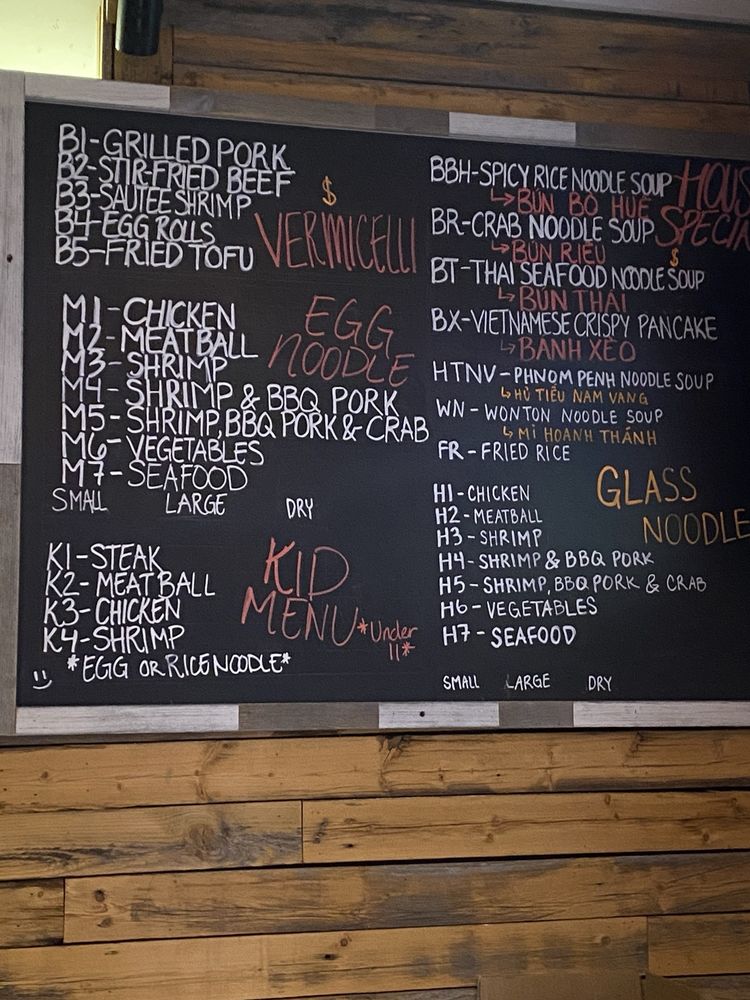 B1-GRILLED PORK
B2-STIR-FRIED BEEF
B3-SAUTEE SHRIMP
B4-EGG ROLLS
B5-FRIED TOFU
$
VERMICELLI
M1-CHICKEN
M2-MEATBALL
M3-SHRIMP
M4-SHRIMP & BBQ PORK
M5-SHRIMP, BBQ PORK & CRAB
M6-VEGETABLES
M7-SEAFOOD
EGG
NOODLE
SMALL LARGE DRY
K1-STEAK
K2-MEATBALL
K3-CHICKEN
K4-SHRIMP
*EGG OR RICE NOODLE*
KID
MENU *Under
11*
HOUS
SPECIA
$
BBH-SPICY RICE NOODLE SOUP
↳BÚN BÒ HUẾ
BR-CRAB NOODLE SOUP
↳BÚN RIÊU
BT-THAI SEAFOOD NOODLE SOUP
↳BÚN THÁI
BX-VIETNAMESE CRISPY PANCAKE
↳BÁNH XÈO
HTNV-PHNOM PENH NOODLE SOUP
↳HỦ TIẾU NAM VANG
WN-WONTON NOODLE SOUP
↳MÌ HOANH THÁNH
FR-FRIED RICE
GLASS
NOODLE
H1-CHICKEN
H2-MEATBALL
H3-SHRIMP
H4-SHRIMP & BBQ PORK
H5-SHRIMP, BBQ PORK & CRAB
H6-VEGETABLES
H7-SEAFOOD
SMALL LARGE DRY